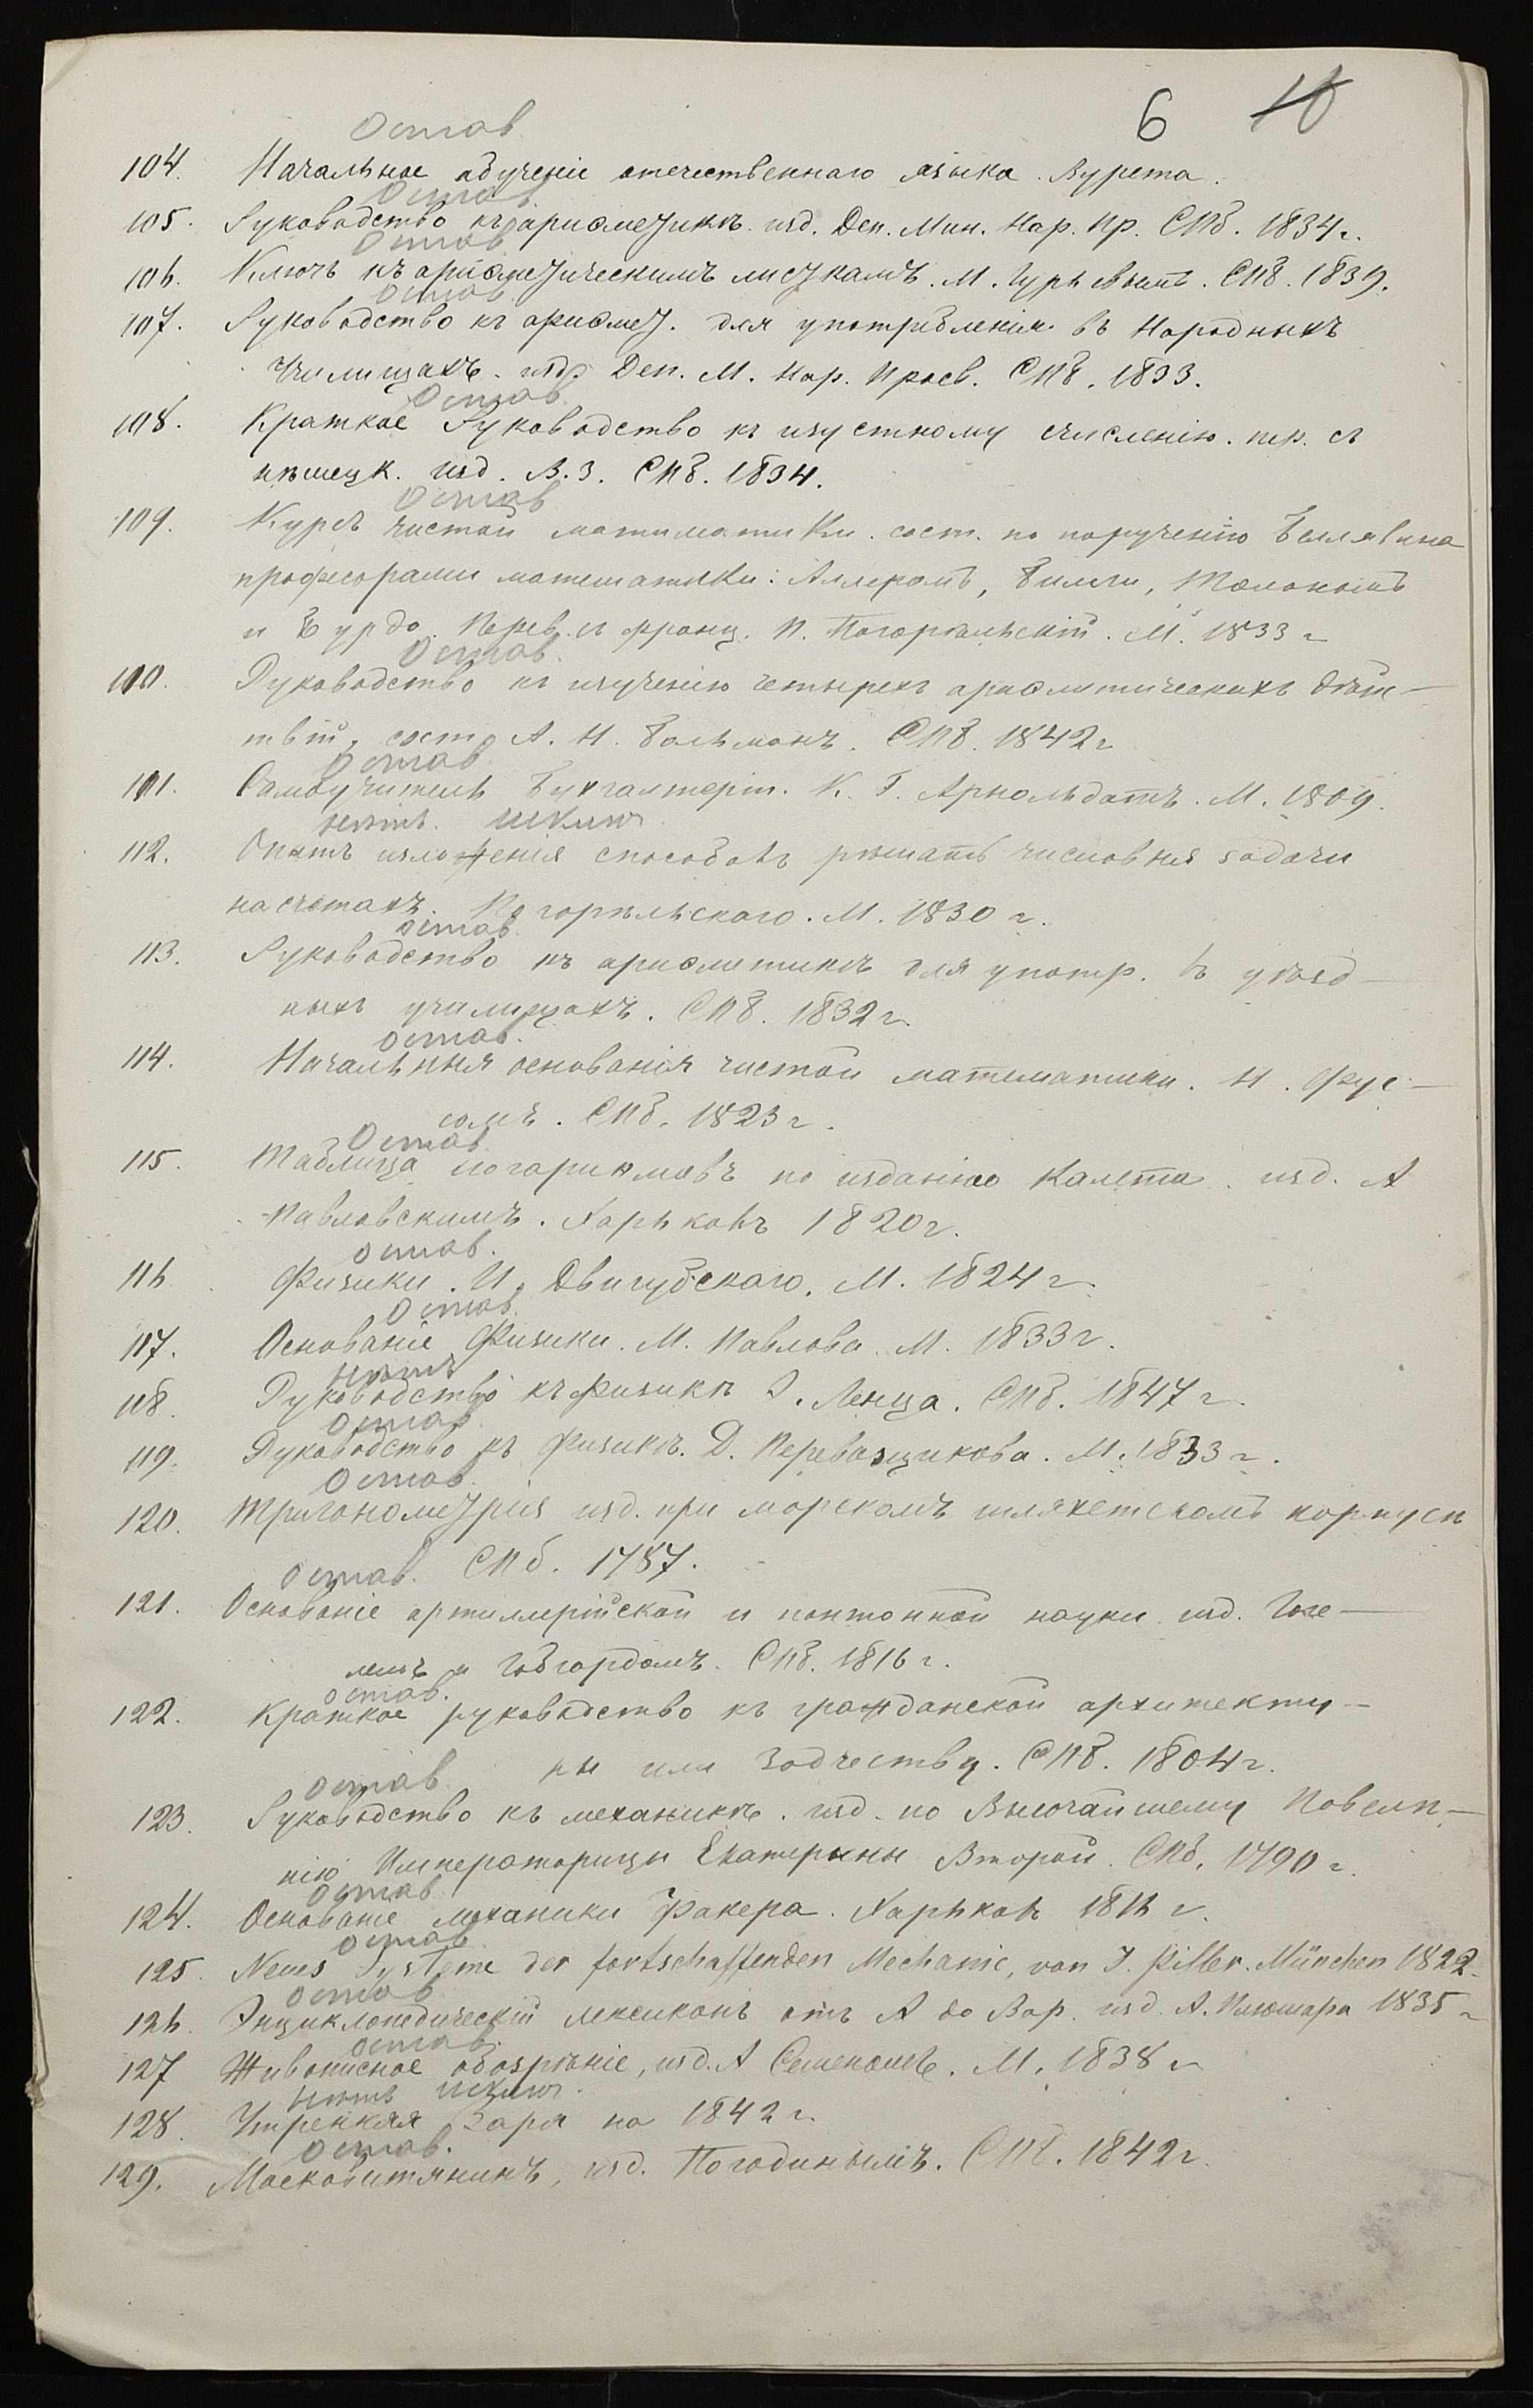 6 10
Остав.
104. Начальное обученіе отечественнаго языка. Вурста.
Остав.
105. Руководство къ ариѳметикѣ. изд. Деп. Мин. Нар. Пр. СПб. 1834 г.
Остав.
106. Ключъ къ ариѳметическимъ листкамъ. М. Гурьевымъ. СПб. 1839.
Остав.
107. Руководство къ ариѳмет. для употребленія въ Народныхъ
Училищахъ. изд. Деп. М. Нар. Просв. СПб. 1833.
Остав.
108. Краткое Руководство къ изустному счисленію. пер. съ
нѣмецк. изд. В. З. СПб. 1834.
Остав
109. Курсъ чистой математики. сост. по порученію Беллявена
професорами математики: Аллеромъ, Билли, Пюлономъ
и Бурдо. Перев. съ франц. П. Погорѣльскій. М. 1833 г
Остав.
110. Руководство къ изученію четырехъ ариѳметическихъ дѣйс-
твій, сост. А. Н. Больманъ. СПб. 1842 г
Остав.
111. Самоучитель Бухгалтеріи. К. Г. Арнольдомъ. М. 1809.
нѣтъ. исключ
112. Опытъ изложенія способовъ рѣшать числовыя задачи
на счетахъ. Погорѣльскаго. М. 1830 г.
остав.
113. Руководство къ ариѳметикѣ для употр. въ уѣзд-
ныхъ училищахъ. СПб. 1832 г.
остав.
114. Начальныя основанія чистой математики. Н. Фус-
сомъ. СПб. 1823 г.
Остав
115. Таблица логариѳмовъ по изданію Калета. изд. А
Павловскимъ. Харьковъ 1820 г.
остав.
116. Физики. И. Двигубскаго. М. 1824 г.
Остав.
117. Основаніе Физики. М. Павлова. М. 1833 г.
нѣтъ
118. Руководство къ Физикѣ Э. Ленца. СПб. 1847 г.
Остав.
119. Руководство къ Физикѣ. Д. Перевощикова. М. 1833 г.
Остав.
120. Тригонометрія изд. при морскомъ шляхетскомъ корпусѣ
остав. СПб. 1787.
121. Основаніе артиллерійской и понтонной науки изд. Гоге-
лемъ и Гебгардомъ. СПб. 1816 г.
остав.
122. Краткое руководство къ гражданской архитекту-
ры или Зодчеству. СПб. 1804 г.
остав.
123. Руководство къ механикѣ. изд. по Высочайшему Повелѣ-
нію Императорицы Екатерины Второй. СПб. 1790 г.
остав.
124. Основаніе механики Факера. Харьковъ 1816 г.
остав
125. Neues Systeme der fortschaffenden Mechanic, von J. Piller. München 1822.
остав.
126. Энциклопедическій лексиконъ отъ А до Вар. изд. А. Плюшара 1835 г
остав.
127 Живописное обозрѣніе, изд. А Семеномъ. М. 1838 г
нѣтъ исключ.
128. Утренняя Заря на 1842 г.
остав.
129. Москвитянинъ, изд. Погодинымъ. СПб. 1842 г.